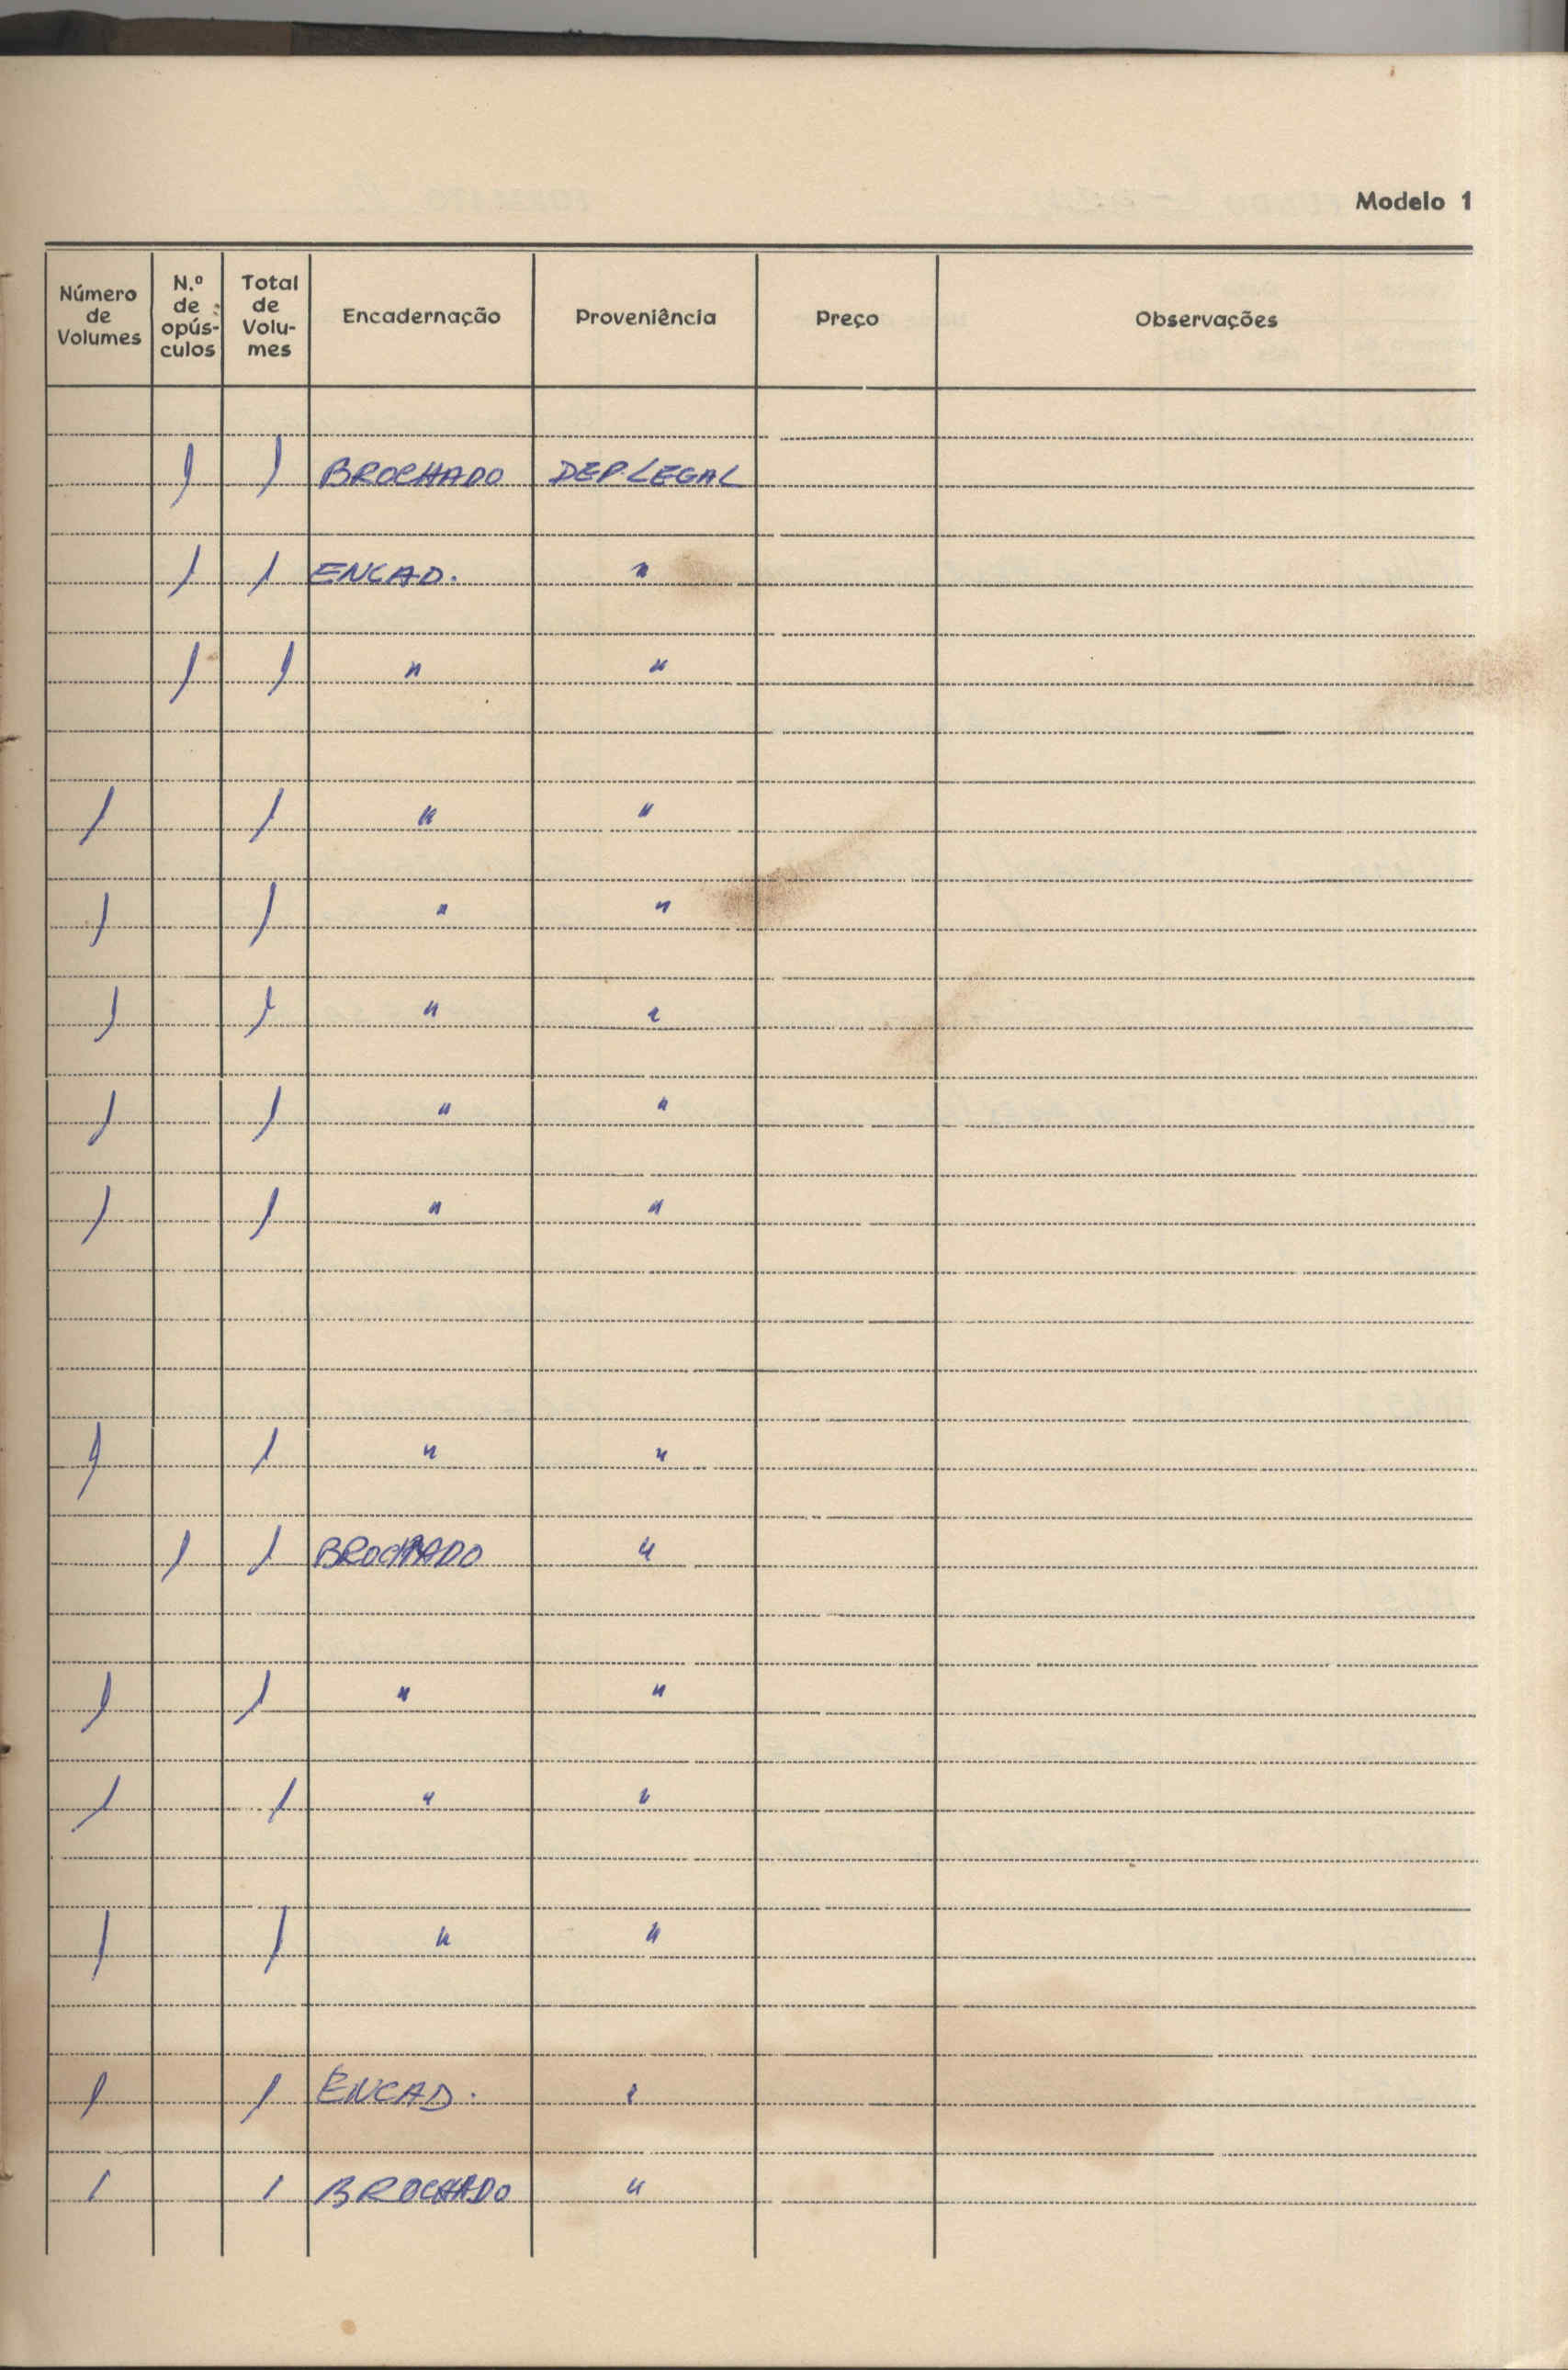 Modelo 1
Número de Volumes N.º de opús-culos Total de Volu-mes Encadernação Proveniência Preço Observações
1 1 BROCHADO DEP. LEGAL
1 1 ENCAD. "
1 1 " "
1 1 " "
1 1 " "
1 1 " "
1 1 " "
1 1 " "
1 1 " "
1 1 BROCHADO "
1 1 " "
1 1 " "
1 1 " "
1 1 ENCAD. "
1 1 BROCHADO "